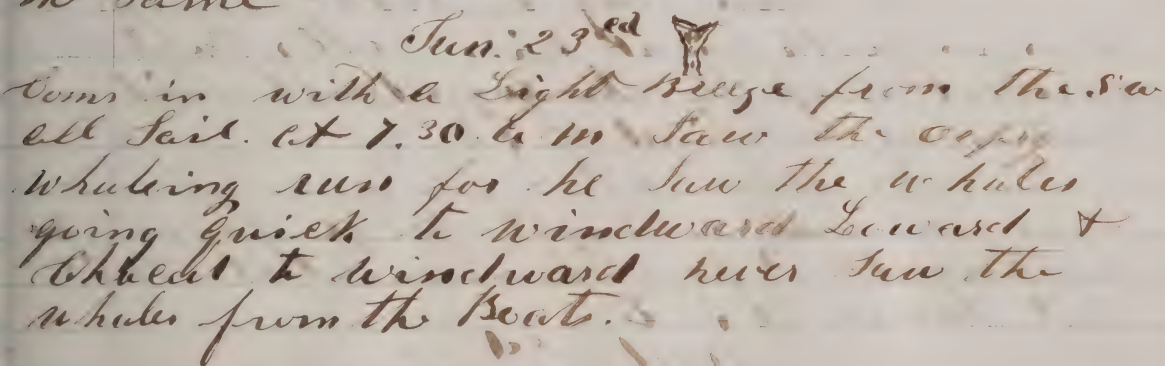 in Same
Jun. 23ed
Coms in with a Light Breeze from the SW
all Sail. at 7.30 a m Saw the
whaleing run for he Saw the whales
going quick to windward Loward &
to windward never Saw the
whales from the Boats.